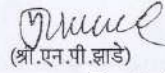 (श्री.एन.पी.झाडे)